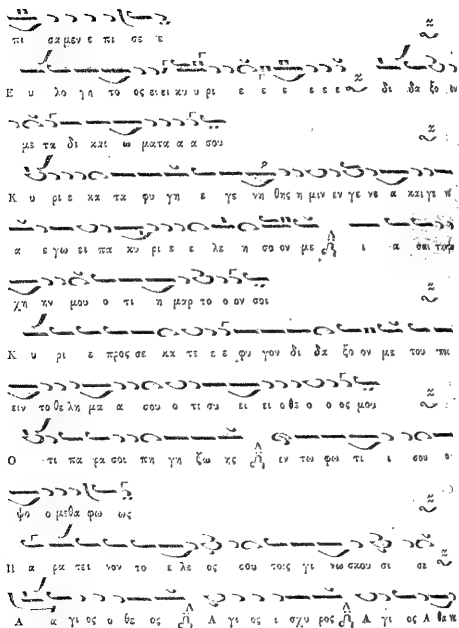 πι σα μεν ε πι σε ε
Ε υ λο γη το ος ει ει κυ υ ρι ε ε ε ε ε ε ε δι δα ξο ον
με τα δι και ω μα τα α α σου
Κ υ ρι ε κα τα φυ γη ε γε νη θης η μιν εν γε νε α και γε νε
α ε γω ει πα κυ ρι ε ε λε η σο ον με ι α σαι την
χη ην μου ο τι η μαρ το ο ον σοι
Κ υ ρι ε προς σε κα τε ε ε φυ γον δι δα ξο ον με του ποι
ειν το θε λη μα α σου ο τι συ ει ει ο θε ο ο ος μου
Ο τι πα ρα σοι πη γη ζω ης εν τω φω τι ι σου ο
ψο ο με θα φω ως
Π α ρα τει νον το ε λε ος σου τοις γι νω σκου σι σε
Α α γι ος ο θε ος Α γι ος ι σχυ ρος Α γι ος Α θα να